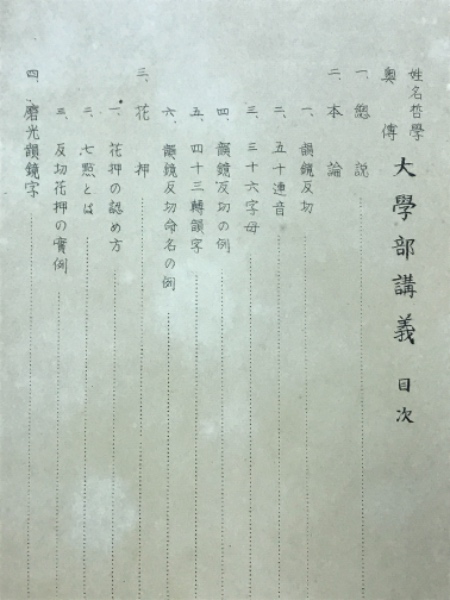 姓名哲學
奥傳
大學部講義 目次
一、總説
二、本論
一、韻鏡反切
二、五十連音
三、三十六字母
四、韻鏡反切の例
五、四十三轉韻字
六、韻鏡反切命名の例
三、花押
一、花押の認め方
二、七點とは
三、反切花押の實例
四、磨光韻鏡字